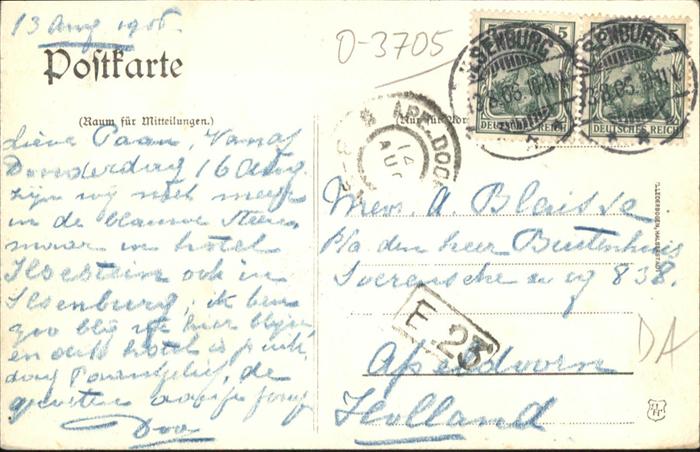 13 Aug 1906.
O-3705
Postkarte
(Raum für Mitteilungen.)
Lieve Paan, Vanaf
Donderdag 16 Aug.
zijn wij niet meer
in de blauwe Steen
maar in hotel
Ilsestein ook in
Ilsenburg; ik ben
zoo blij we hier blijven,
en dit hotel is
de
groeten
Doo
5 5
ILSENBURG
ILSENBURG
DEUTSCHES REICH
DEUTSCHES REICH
APELDOORN
14
AUG
Mevr. A. Blaisse
p/a den heer Buitenhuis
Soerensche weg 838.
E 23
Apeldoorn
Holland
DA